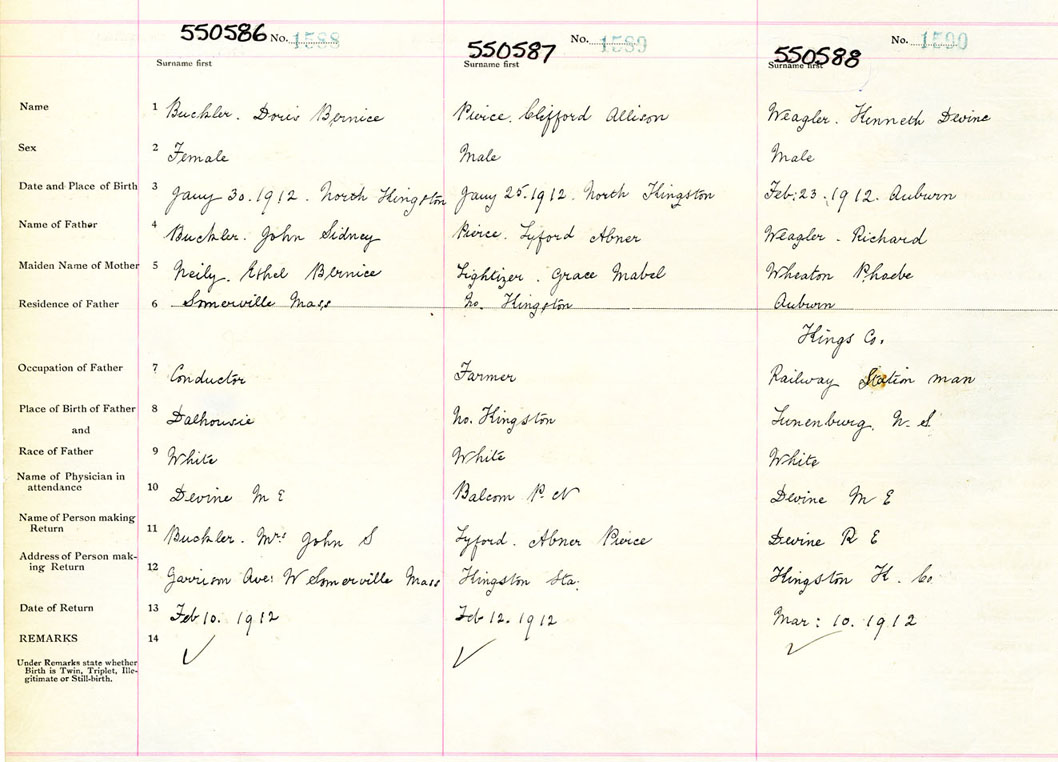 550586 No. 1588 550587 No. 1589 550588 No. 1590
Surname first Surname first Surname first
Name 1 Buckler. Doris Bernice Pierce. Clifford Allison Weagler. Kenneth Devine
Sex 2 Female Male Male
Date and Place of Birth 3 Jany 30. 1912. North Kingston Jany 25. 1912. North Kingston Feb: 23. 1912. Auburn
Name of Father 4 Buckler. John Sidney Pierce. Lyford Abner Weagler - Richard
Maiden Name of Mother 5 Neily. Ethel Bernice Lightizer. Grace Mabel Wheaton Phoebe
Residence of Father 6 Somerville Mass No. Kingston Auburn
Kings Co.
Occupation of Father 7 Conductor Farmer Railway Station man
Place of Birth of Father 8 Dalhousie No. Kingston Lunenburg. N. S
and
Race of Father 9 White White White
Name of Physician in
attendance 10 Devine M E Balcom P. N Devine M E
Name of Person making
Return 11 Buckler. Mrs John S Lyford. Abner Pierce Devine R E
Address of Person mak-
ing Return 12 Garrison Ave: W Somerville Mass Kingston Sta. Kingston K. Co.
Date of Return 13 Feb 10. 1912 Feb 12. 1912 Mar: 10. 1912
REMARKS 14
Under Remarks state whether
Birth is Twin, Triplet, Ille-
gitimate or Still-birth.